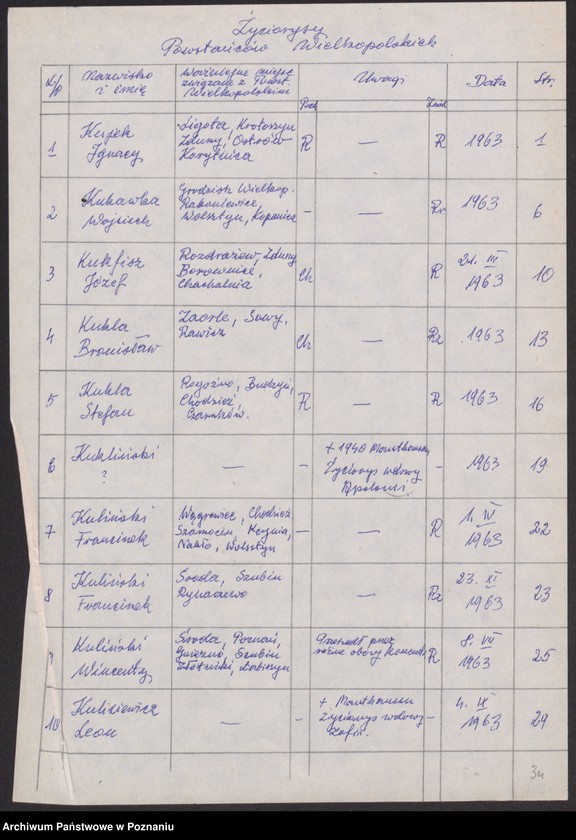 Życiorysy
Powstańców Wielkopolskich
L/p Nazwisko i imię Ważniejsze miejsc. związane z Powst. Wielkopolskim Uwagi Data Str.
1 Kujek Ignacy Ligota, Krotoszyn Zduny, Ostrów Korytnica R — R 1963 1
2 Kukawka Wojciech Grodzisk Wielkop. Rakoniewice, Wolsztyn, Kopanica - — 1963 6
3 Kukfisz Józef Rozdrażew, Zduny Borownica, Chachalnia Ch R 21. III 1963 10
4 Kukla Bronisław Zaorle, Sowy, Rawicz Ch — Rz 1963 13
5 Kukla Stefan Rogoźno, Budzyń, Chodzież Czarnków. R — R 1963 16
6 Kukliński ? — - + 1940 Mauthausen Życiorys wdowy Apolonii - 1963 19
7 Kuliński Franciszek Wągrowiec, Chodzież Szamocin, Kcynia, Nakło, Wolsztyn - — R 1. IV 1963 22
8 Kuliński Franciszek Środa, Szubin Rynarzewo — Rz 23. XI 1963 23
9 Kuliński Wincenty Środa, Poznań, Gniezno, Szubin Złotniki, Łabiszyn Przeszedł przez różne obozy koncent. R 8. VII 1963 25
10 Kulisiewicz Leon — - + Mauthausen Życiorys wdowy Zofii. - 4. IX 1963 29
34
Archiwum Państwowe w Poznaniu